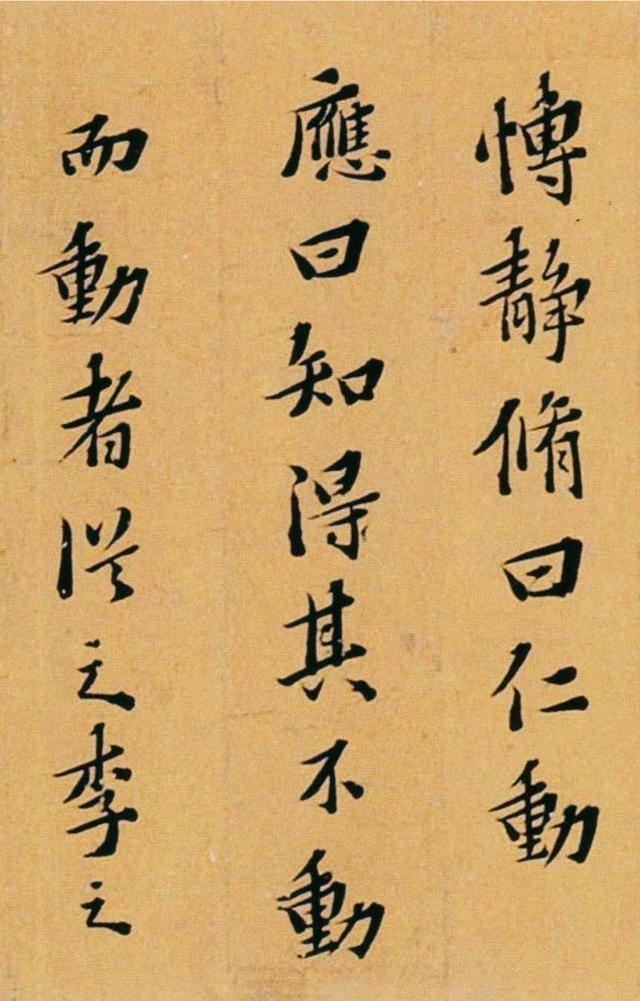 愽靜脩曰仁動
應曰知得其不動
而動者從之李之